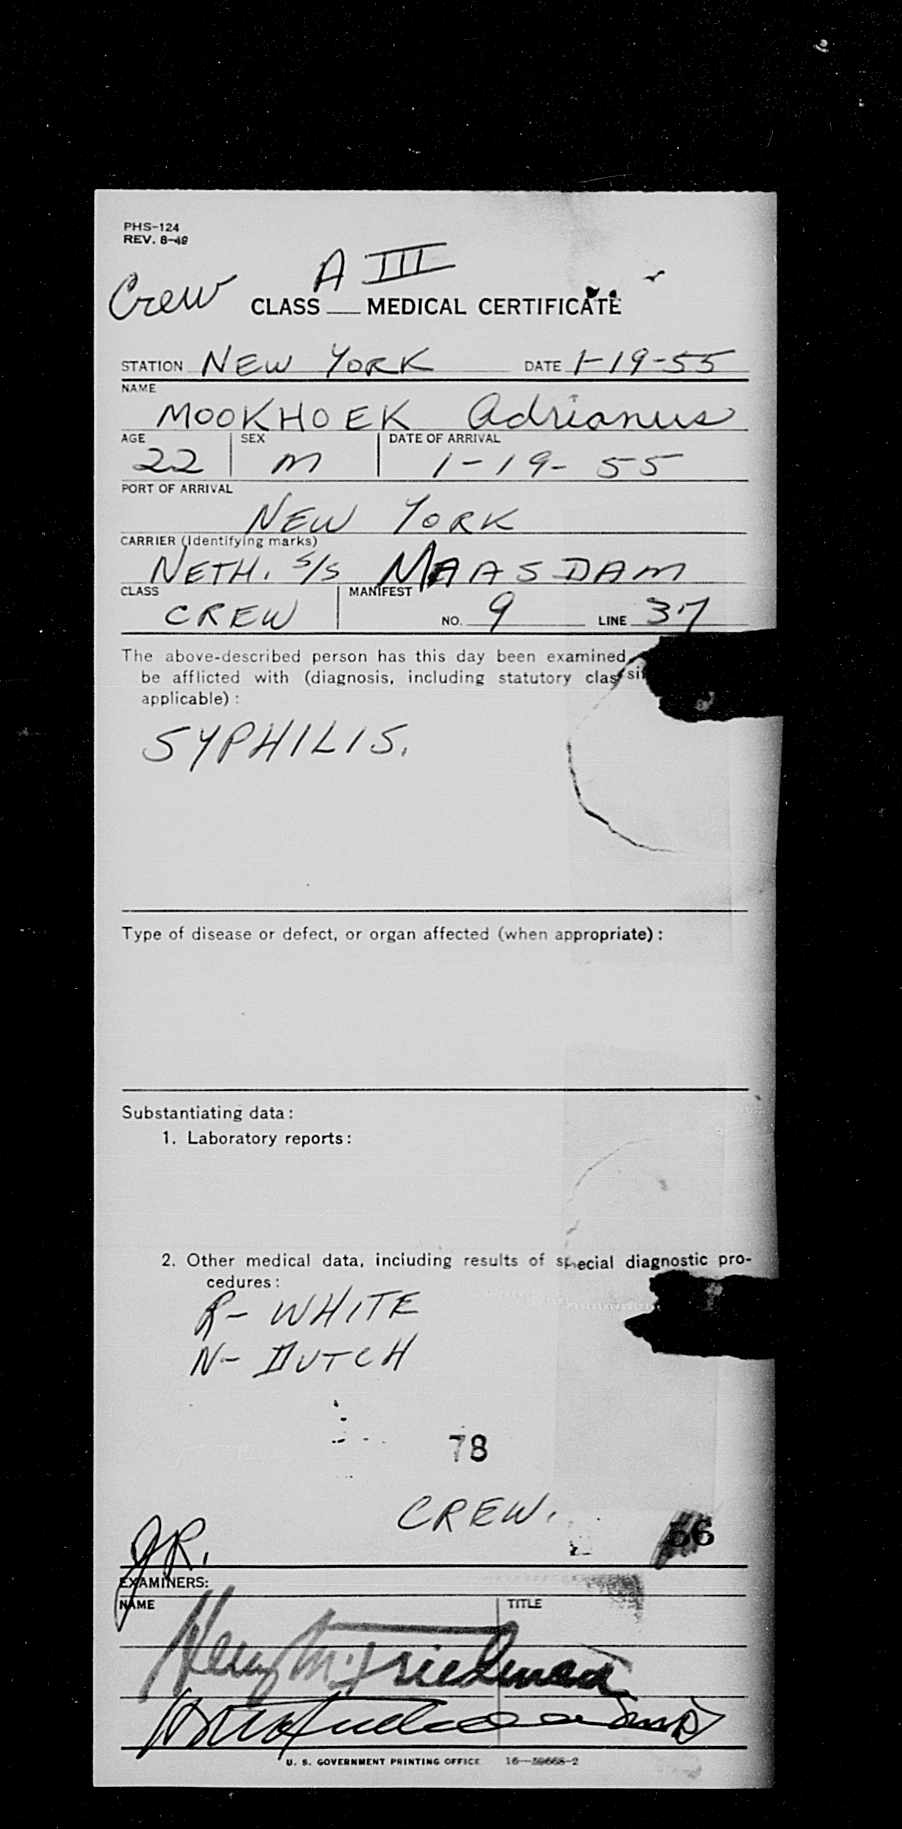 PHS-124
REV. 8-49
Crew A III
CLASS MEDICAL CERTIFICATE
STATION NEW YORK DATE 1-19-55
NAME
MOOKHOEK Adrianus
AGE SEX DATE OF ARRIVAL
22 m 1-19-55
PORT OF ARRIVAL
NEW YORK
CARRIER (Identifying marks)
NETH. S/S MAASDAM
CLASS MANIFEST
CREW NO. 9 LINE 37
The above-described person has this day been examined
be afflicted with (diagnosis, including statutory
applicable):
SYPHILIS.
Type of disease or defect, or organ affected (when appropriate):
Substantiating data:
1. Laboratory reports:
2. Other medical data, including results of special diagnostic pro-
cedures:
R- WHITE
N- DUTCH
78
CREW.
66
JR.
EXAMINERS:
NAME TITLE
Henry M. Friedman
U. S. GOVERNMENT PRINTING OFFICE 16—59668-2